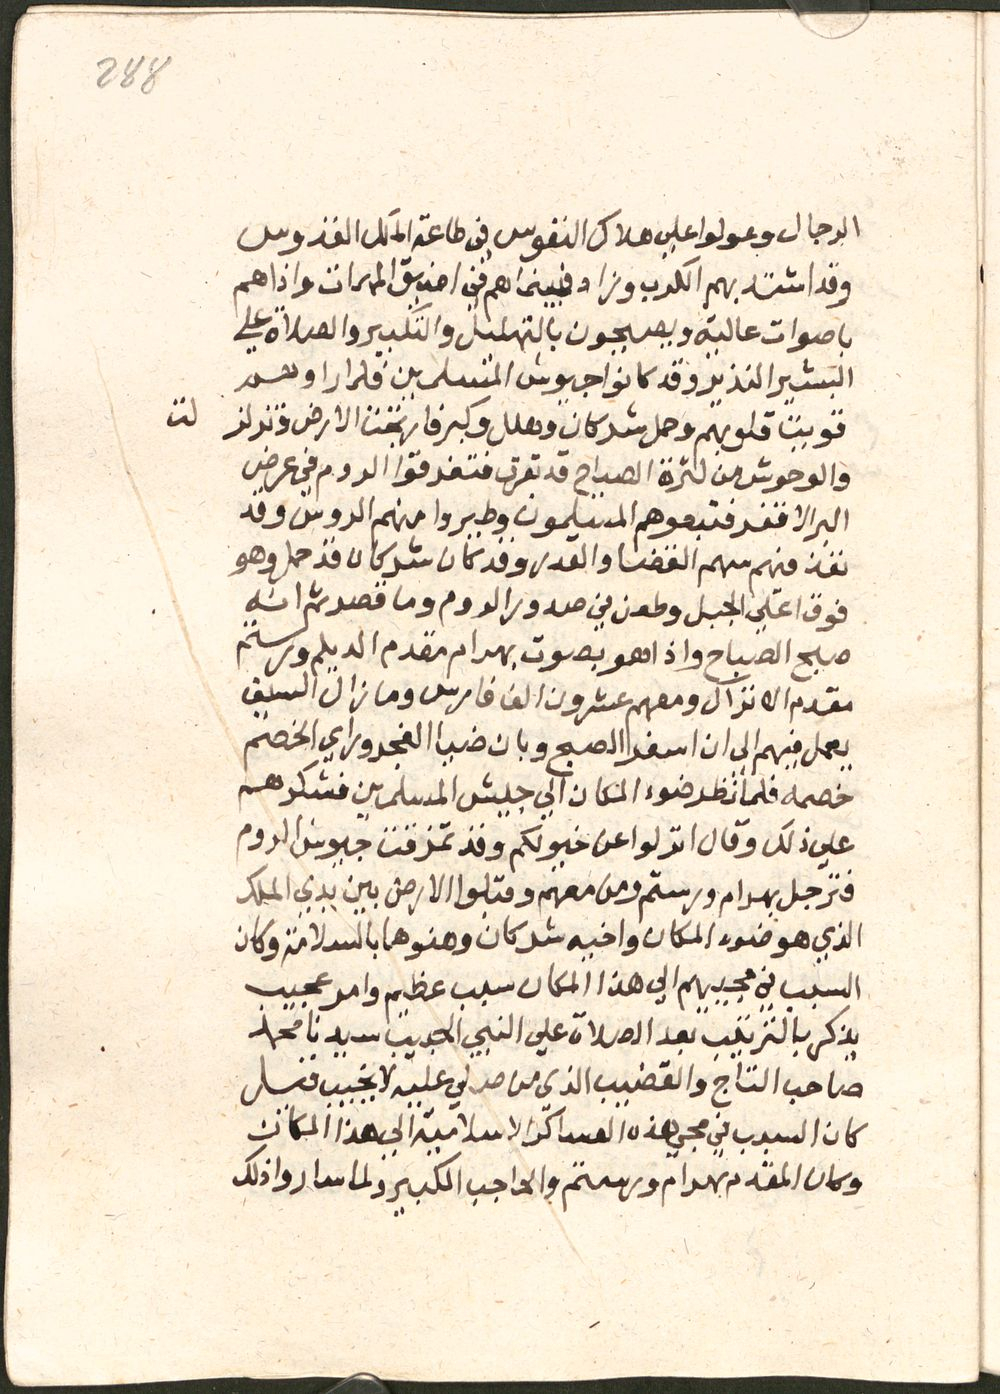 288
الرجال وعولوا علي هلاك النفوس في طاعة الملك القدوس
وقد اشتد بهم الكرب وزاد فبينما هم في اضيق المهمات واذا هم
باصوات عالية ويصيحون بالتهليل والتكبير والصلاة علي
البشير النذير وقد كانوا جيوش المسلمين فلما راوهم
قويت قلوبهم وحمل شركان وهلل وكبر فارتجفت الارض وتزلز
لت
والوحوش من كثرة الصياح قد تفرقت فتفرقوا الروم في عرض
البر الاقفر فتبعوهم المسلمون وطيروا منهم الروس وقد
نفذ فيهم سهم القضا والقدر وقد كان شركان قد حمل وهو
فوق اعلي الجبل وطعن في صدور الروم وما قصر ثم انه
صبح الصباح واذا هو بصوت بهرام مقدم الديلم ورستم
مقدم الاتراك ومعهم عشرون الف فارس وما زال السيف
يعمل فيهم الي ان اسفر الصبح وبان ضيا الفجر وراي الخصم
خصمه فلما نظر ضوء المكان الي جيش المسلمين فشكرهم
علي ذلك وقال انزلوا عن خيولكم وقد تمزقت جيوش الروم
فترجل بهرام ورستم ومن معهم وقبلوا الارض بين يدي الملك
الذي هو ضوء المكان واخيه شركان وهنوهما بالسلامة وكان
السبب في مجيهم الي هذا المكان سبب عظيم وامر عجيب
يذكر بالترتيب بعد الصلاة علي النبي الحبيب سيدنا محمد
صاحب التاج والقضيب الذي من صلي عليه لا يخيب قيل
كان السبب في مجي هذه العساكر الاسلامية الي هذا المكان
وكان المقدم بهرام ورستم والحاجب الكبير ولما ساروا ذلك